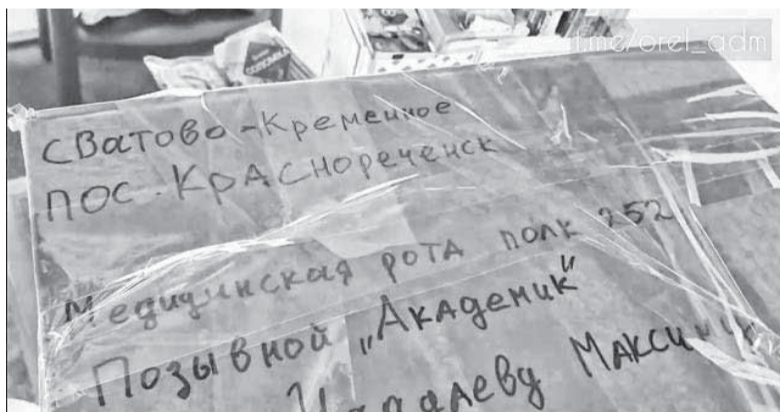 t.me/orel_adm
СВатово-Кременное
ПОС. КрАСНореченск
Медицинская рота полк 252
Позывной „Академик"